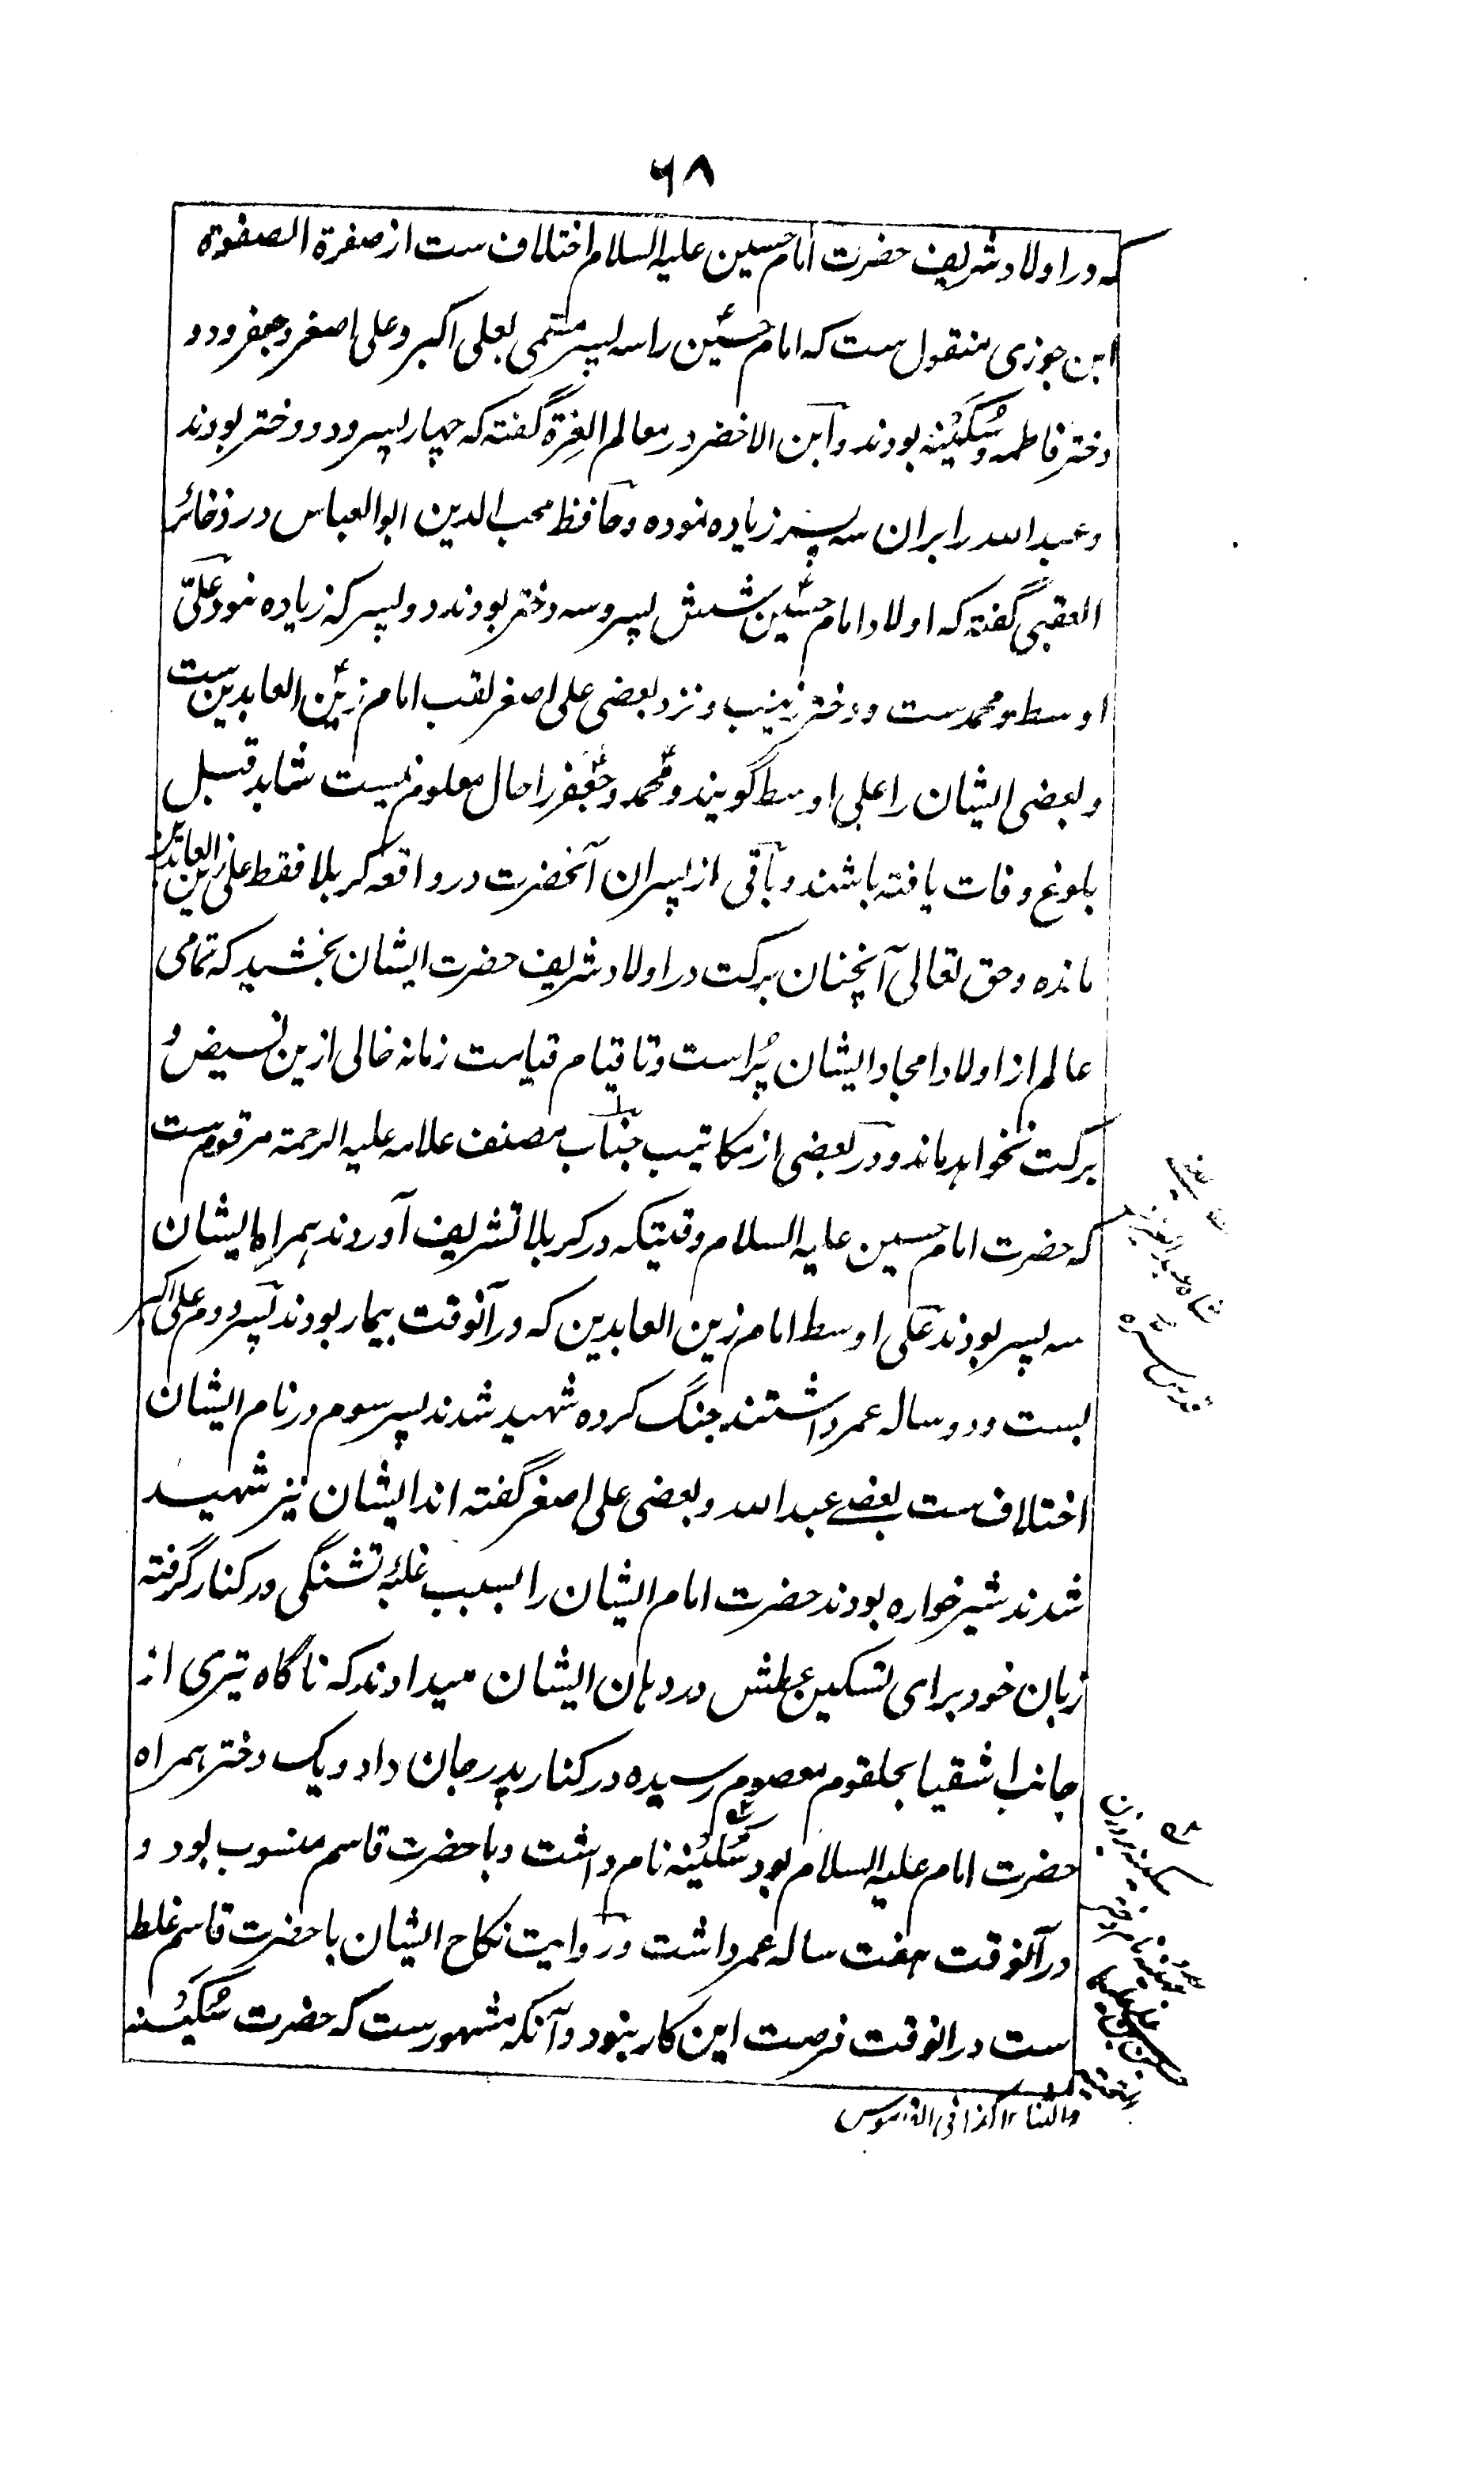 ۶۸
که در اولاد شریف حضرت امام حسین علیه السلام اختلاف ست از صفرة الصفوة
ابن جوزی منقول ست که امام حسینؑ را سه پسر مسمی بعلی اکبر و علی اصغر و جعفر و دو
دختر فاطمه و سُکَیْنه بودند و ابن الاخضر در معالم العترة گفته که چهار پسر و دو دختر بودند
و عبد الله را بران سه پسر زیاده نموده و حافظ محب الدین ابو العباس در ذخائر
العقبی گفته که اولاد امام حسینؑ شش پسر و سه دختر بودند دو پسر که زیاده نمود علیّ
اوسط و محمد ست و دختر زینب و نزد بعضی علی اصغر لقب امام زین العابدینؑ ست
و بعضی ایشان را علی اوسط گویند و محمدؑ و جعفرؑ را حال معلوم نیست شاید قبل
بلوغ وفات یافته باشند و باقی از پسران آنحضرت در واقعه کربلا فقط علی زین العابدین
مانده و حق تعالی آنچنان برکت در اولاد شریف حضرت ایشان بخشید که تمامی
عالم از اولاد امجاد ایشان پُر است و تا قیام قیامت زمانه خالی ازین فیض و
برکت نخواهد ماند و در بعضی از مکاتیب جناب مصنف علامه علیه الرحمة مرقوم ست
که حضرت امام حسین علیه السلام وقتیکه در کربلا تشریف آوردند همراه ایشان
سه پسر بودند علی اوسط امام زین العابدین که در آنوقت بیمار بودند پسر دوم علی اکبر
بست و دو ساله عمر داشتند جنگ کرده شهید شدند پسر سوم در نام ایشان
اختلاف ست بعضے عبد الله و بعضی علی اصغر گفته اند ایشان نیز شهید
شدند شیر خواره بودند حضرت امام ایشان را بسبب غلبۂ تشنگی در کنار گرفته
زبان خود برای تسکین عطش در دهان ایشان میدادند که ناگاه تیری از
جانب اشقیا بحلقوم معصوم رسیده در کنار پدر جان داد و یک دختر همراه
حضرت امام علیه السلام بود سُکَیْنه نام داشت و با حضرت قاسم منسوب بود و
در آنوقت هفت ساله عمر داشت و روایت نکاح ایشان با حضرت قاسم غلط
ست در انوقت فرصت این کار نبود و آنکه مشهور ست که حضرت سُکَیْنه
شاه عبد العزیز
قدس سره
سکینه بروزن
والثنا ۱۲ کذا فی القاموس